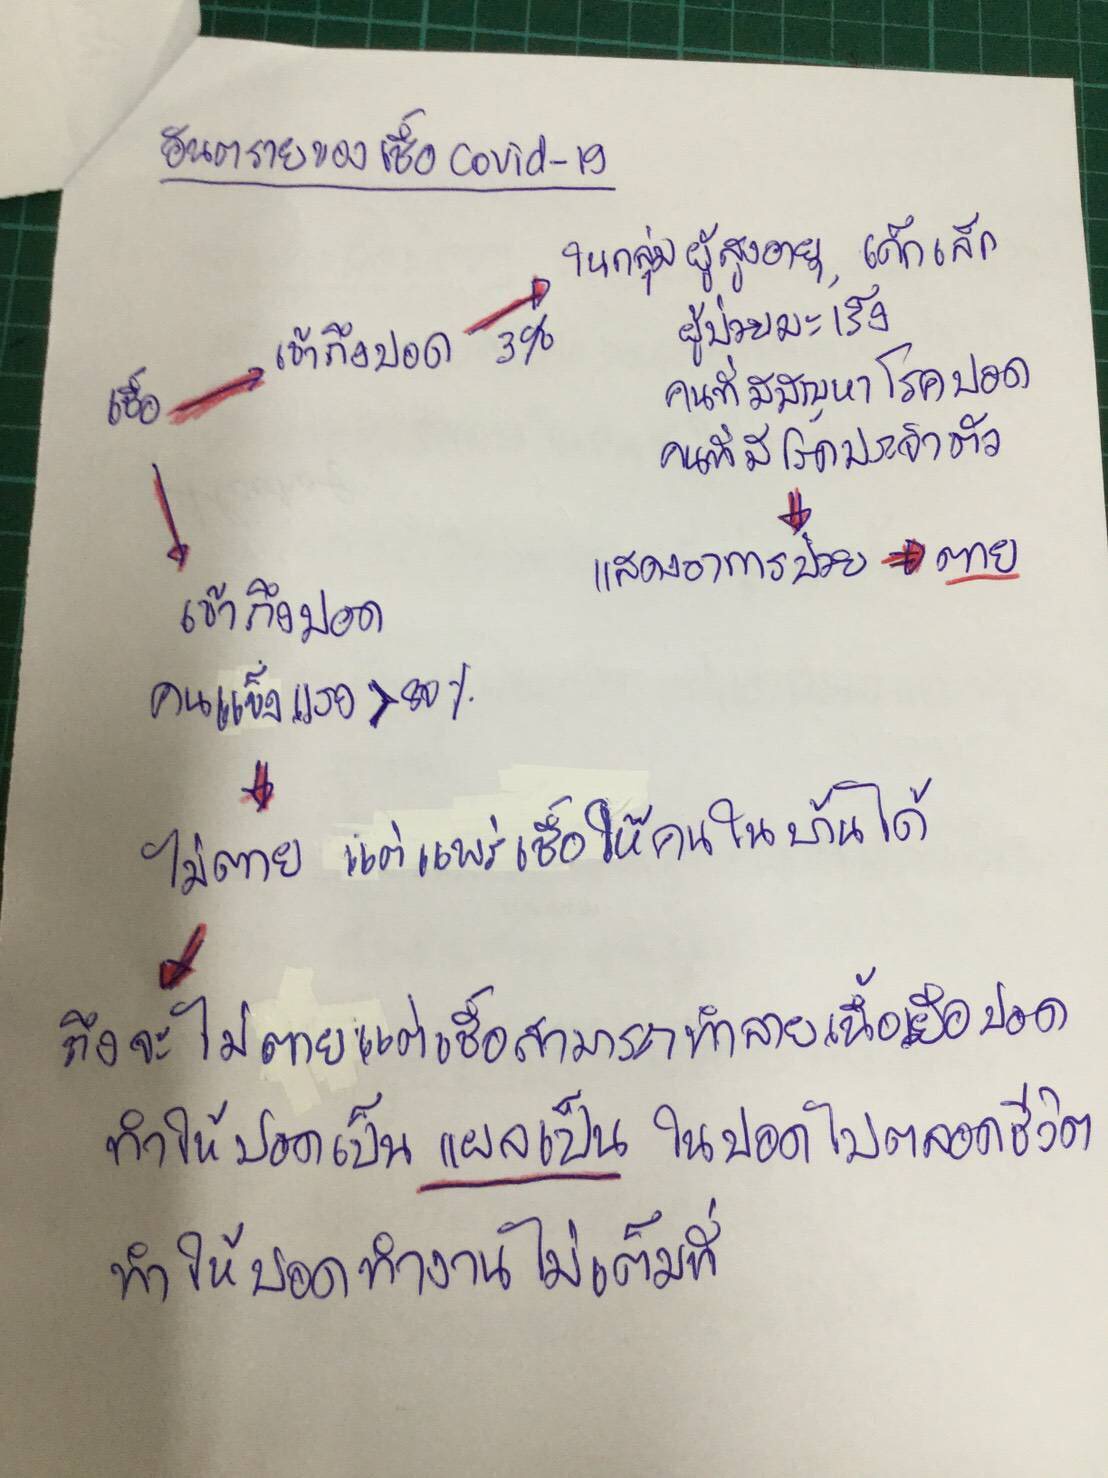 อันตรายของเชื้อ Covid-19
ในกลุ่มผู้สูงอายุ, เด็กเล็ก
ผู้ป่วยมะเร็ง
คนที่มีปัญหาโรคปอด
คนที่มีโรคประจำตัว
แสดงอาการป่วย → ตาย
เชื้อ → เข้าถึงปอด 3%
เข้าถึงปอด
คนแข็งแรง > 80%
ไม่ตาย แต่แพร่เชื้อให้คนในบ้านได้
ถึงจะไม่ตายแต่เชื้อสามารถทำลายเนื้อเยื่อปอด
ทำให้ปอดเป็น แผลเป็น ในปอดไปตลอดชีวิต
ทำให้ปอดทำงานไม่เต็มที่